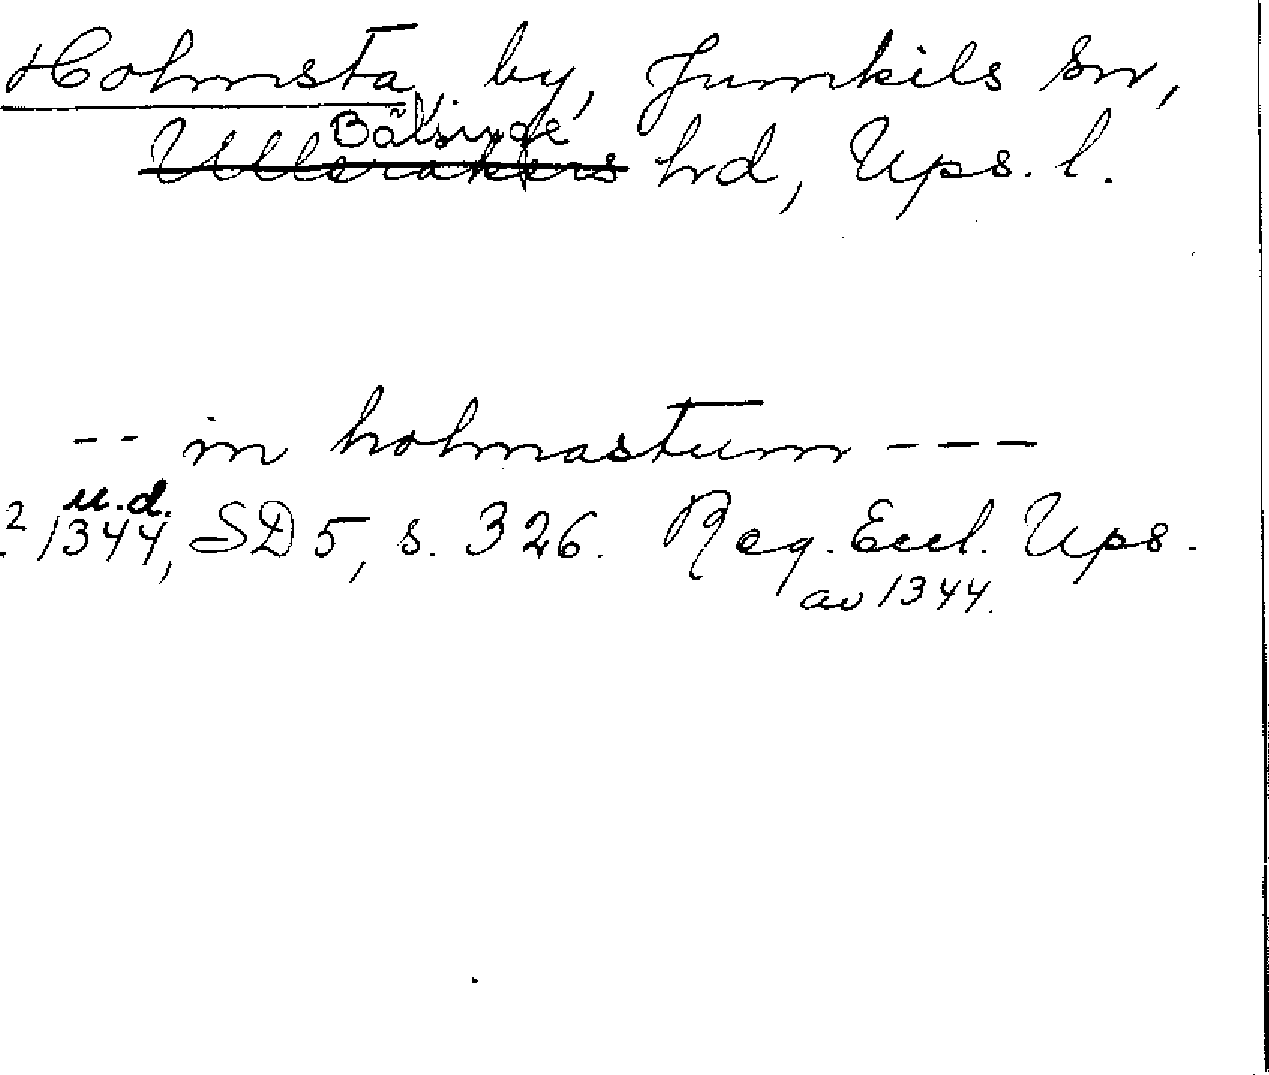 Holmsta, by, Jumkils sn,
Bälinge
Ullerakers hrd, Ups. l.
-- in holmastum ---
u.d.
2 1344, SD 5, s. 326. Reg. Eccl. Ups.
av 1344.